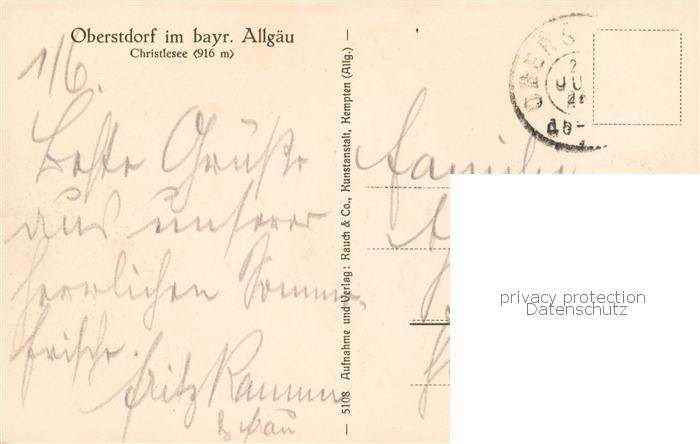 Oberstdorf im bayr. Allgäu
Christlesee (916 m)
1/6.
Beste Grüße
aus unserer
herrlichen Sommer-
frische.
Fritz Ramm
& Frau
— 5108 Aufnahme und Verlag: Rauch & Co., Kunstanstalt, Kempten (Allg.) —
OBERS
2
JU
Familie
privacy protection
Datenschutz